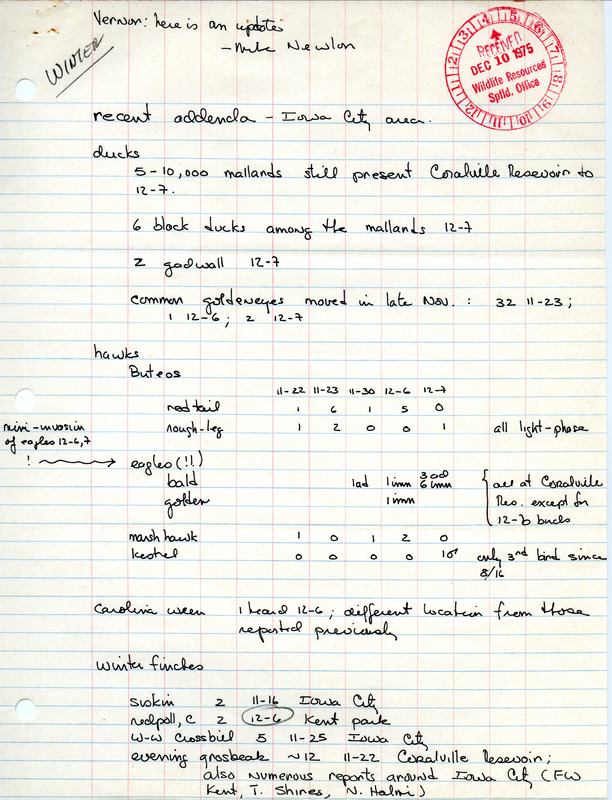 Vernon: here is an update
- Mike Newlon
WINTER
RECEIVED
DEC 10 1975
Wildlife Resources
Spfld. Office
recent addenda - Iowa City area.
ducks
5-10,000 mallards still present Coralville Reservoir to
12-7.
6 black ducks among the mallards 12-7
2 gadwall 12-7
common goldeneyes moved in late Nov. : 32 11-23;
1 12-6; 2 12-7
hawks
Buteos
11-22 11-23 11-30 12-6 12-7
red tail 1 6 1 5 0
rough-leg 1 2 0 0 1 all light-phase
mini-invasion
of eagles 12-6,7
! → eagles (!!)
bald 1ad 1imm 3ad 6imm
golden 1imm
{ all at Coralville
Res. except for
12-6 birds
marsh hawk 1 0 1 2 0
kestrel 0 0 0 0 1♂ only 3rd bird since
8/16
Carolina wren 1 heard 12-6; different location from those
reported previously
winter finches
siskin 2 11-16 Iowa City
redpoll, C 2 12-6 Kent park
W-W Crossbill 5 11-25 Iowa City
evening grosbeak ~12 11-22 Coralville Reservoir;
also numerous reports around Iowa City (FW
Kent, T. Shires, N. Halmi)